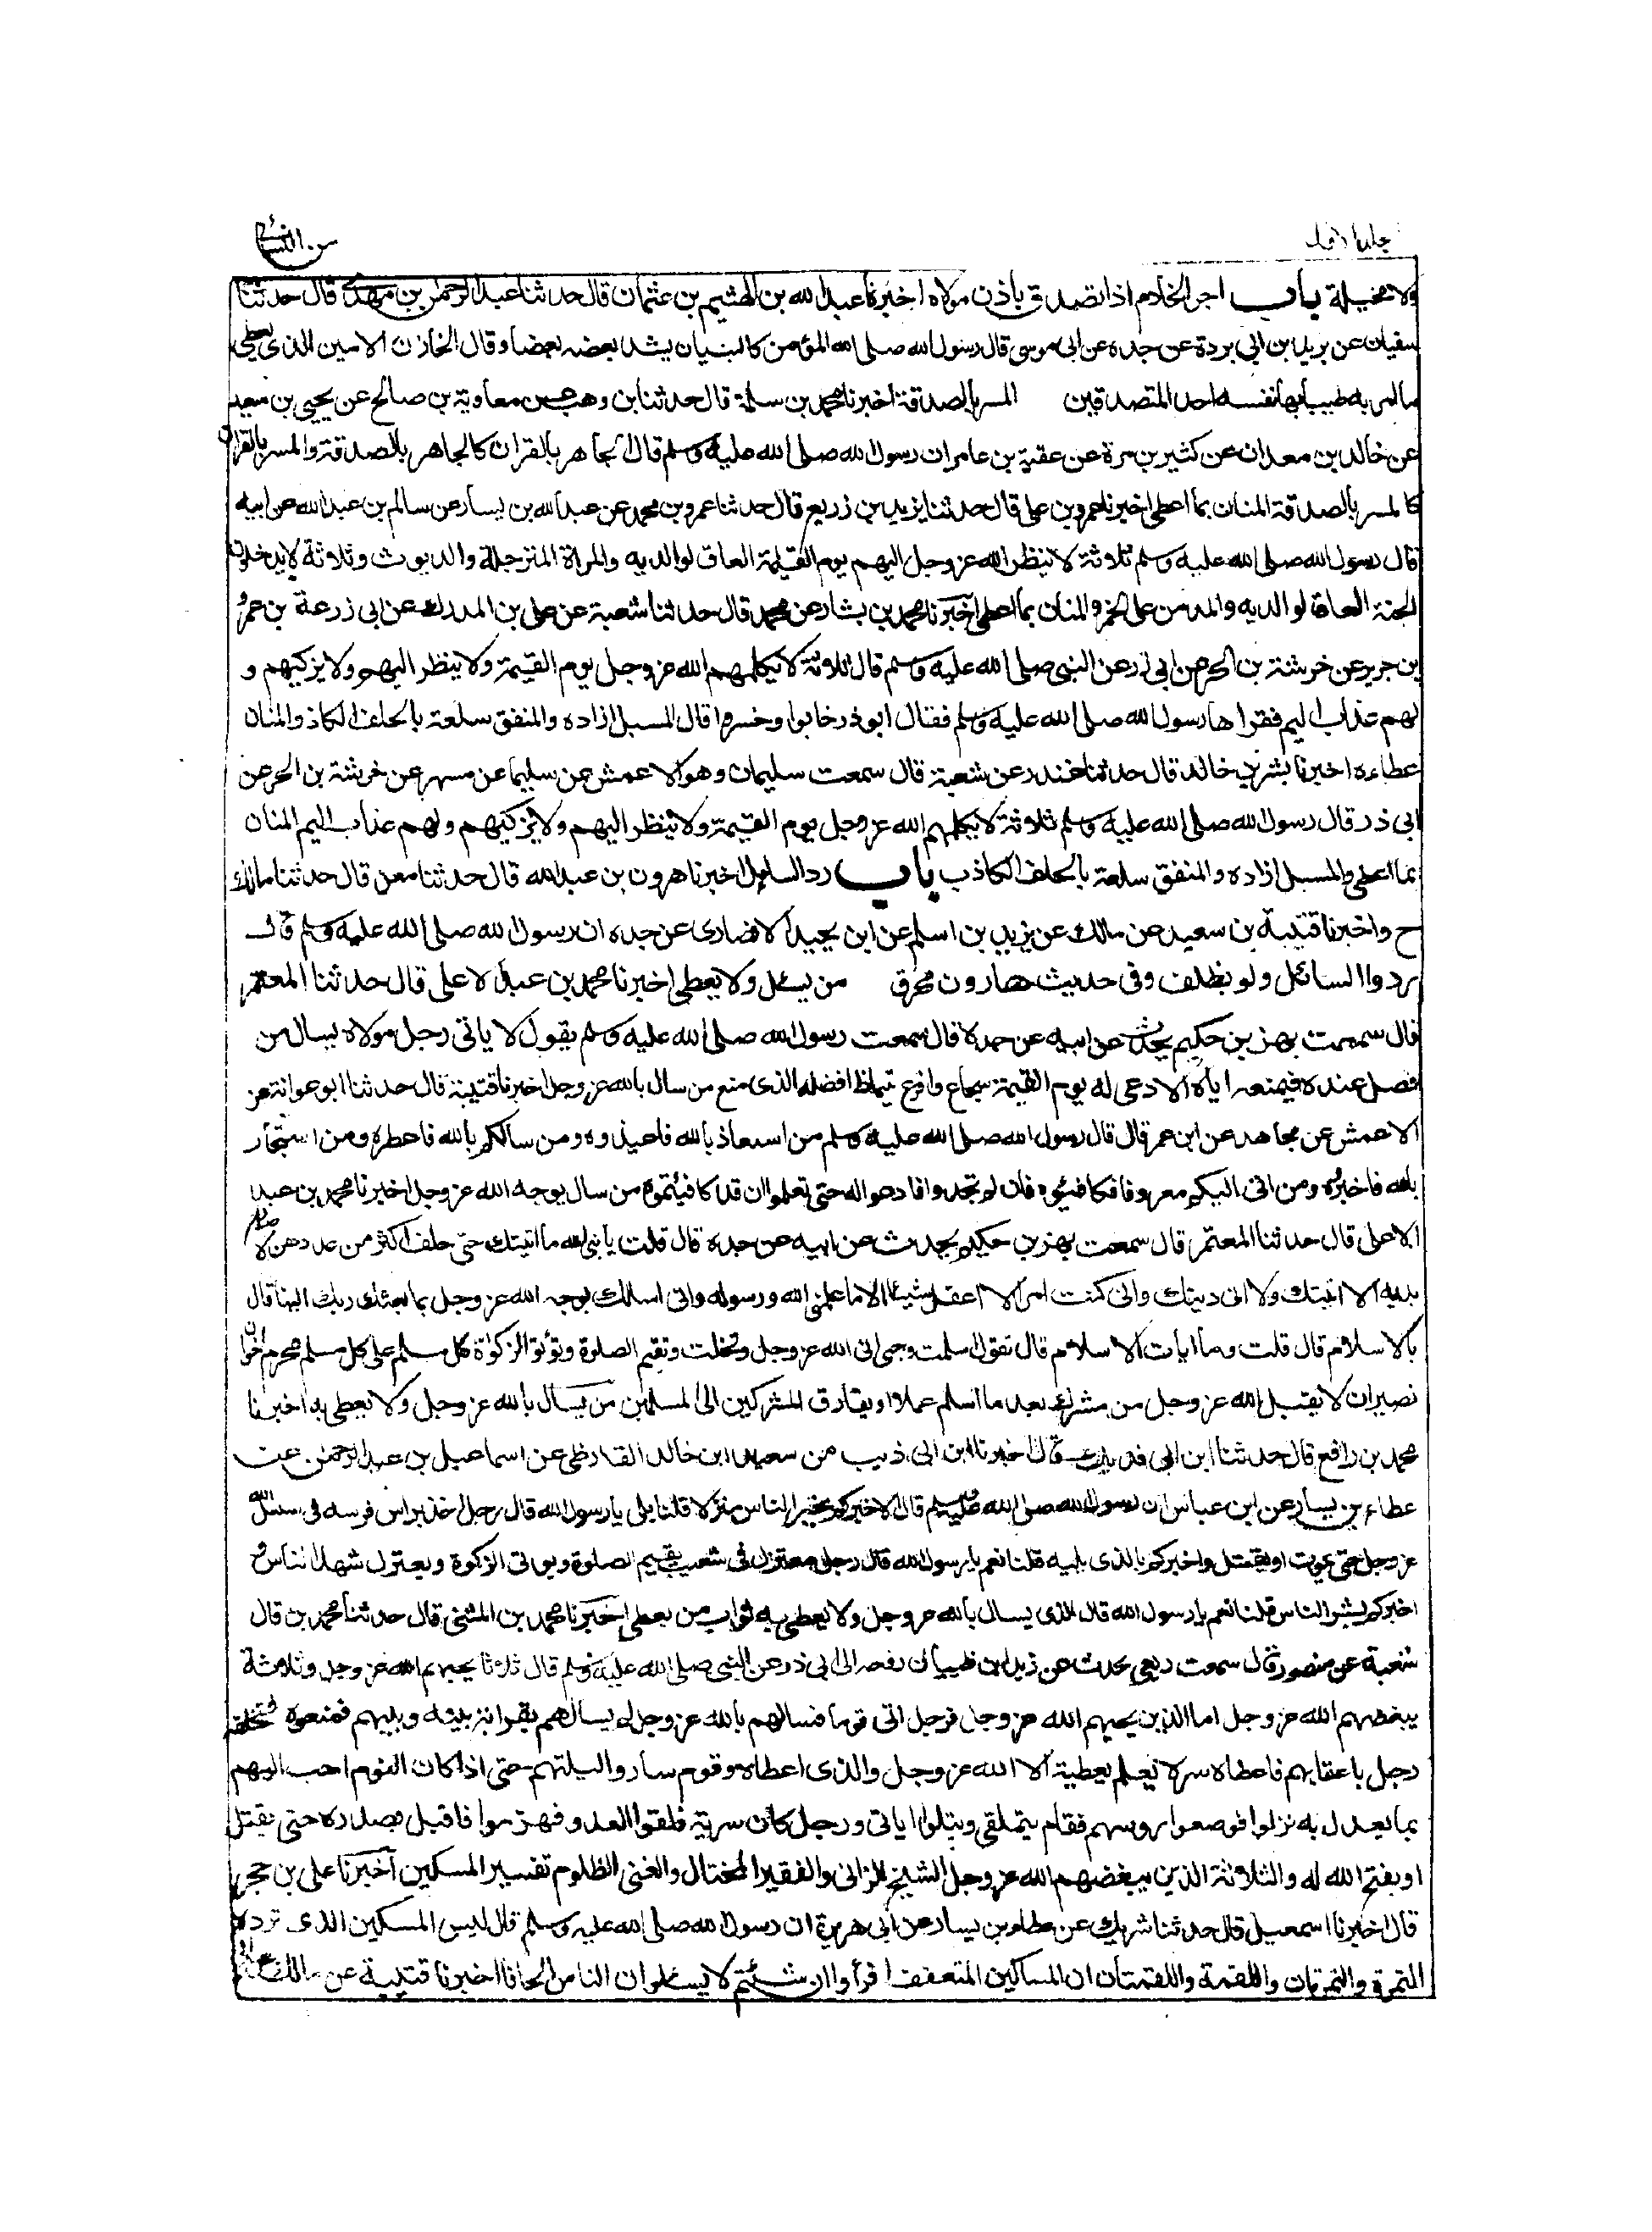 جلد اول
سنن النسائي
ولا مخيلة باب اجر الخادم اذا تصدق باذن مولاه اخبرنا عبد الله بن الهشيم بن عثمان قال حدثنا عبد الرحمن بن مهدي قال حدثنا
سفيان عن بريد بن ابي بردة عن جده عن ابي موسى قال رسول الله صلى الله المؤمن كالبنيان يشد بعضه بعضا وقال الخازن الامين الذى يعطي
ما امر به طيبا بها نفسه احد المتصدقين المسر بالصدقة اخبرنا محمد بن سلمة قال حدثنا بن وهب عن معاوية بن صالح عن يحيى بن سعيد
عن خالد بن معدان عن كثير بن مرة عن عقبة بن عامر ان رسول الله صلى الله عليه وسلم قال الجاهر بالقران كالجاهر بالصدقة والمسر بالقران
كالمسر بالصدقة المنان بما اعطى اخبرنا عمرو بن على قال حدثنا يزيد بن زريع قال حدثنا عمرو بن محمد عن عبد الله بن يسار عن سالم بن عبد الله عن ابيه
قال رسول الله صلى الله عليه وسلم ثلاثة لا ينظر الله عز وجل اليهم يوم القيمة العاق لوالديه والمراة المترجلة والديوث وثلاثة لا يدخلون
الجنة العاق لوالديه والمدمن على الخمر والمنان بما اعطى اخبرنا محمد بن بشار عن محمد قال حدثنا شعبة عن على بن المدرك عن ابى زرعة بن عمرو
بن جرير عن خرشة بن الحر عن ابى ذر عن النبى صلى الله عليه وسلم قال ثلاثة لا يكلمهم الله عز وجل يوم القيمة ولا ينظر اليهم ولا يزكيهم و
لهم عذاب اليم فقرأها رسول الله صلى الله عليه وسلم فقال ابو ذر خابوا وخسروا قال المسبل ازاره والمنفق سلعة بالحلف الكاذ والمنان
عطاءه اخبرنا بشر بن خالد قال حدثنا غندر عن شعبة قال سمعت سليمان وهو الاعمش عن سليما عن مسهر عن خرشة بن الحر عن
ابى ذر قال رسول الله صلى الله عليه وسلم ثلاثة لا يكلمهم الله عز وجل يوم القيمة ولا ينظر اليهم ولا يزكيهم ولهم عذاب اليم المنان
بما اعطى والمسبل ازاره والمنفق سلعة بالحلف الكاذب باب رد السايل اخبرنا هرون بن عبد الله قال حدثنا معن قال حدثنا مالك
ح واخبرنا قتيبة بن سعيد عن مالك عن يزيد بن اسلم عن ابن بجيد الانصارى عن جده ان رسول الله صلى الله عليه وسلم قال
ردوا السائل ولو بظلف وفى حديث هارون محرق من يسئل ولا يعطى اخبرنا محمد بن عبد لاعلى قال حدثنا المعتمر
قال سمعت بهز بن حكيم يحدث عن ابيه عن جده قال سمعت رسول الله صلى الله عليه وسلم يقول لا ياتى رجل مولاه يسال من
فضل عنده فيمنعه اياه الا دعى له يوم القيمة شجاع واقرع يتملظ افضله الذى منع من سال بالله عز وجل اخبرنا قتيبة قال حدثنا ابو عوانة عن
الاعمش عن مجاهد عن ابن عمر قال قال رسول الله صلى الله عليه وسلم من استعاذ بالله فاعيذوه ومن سالكم بالله فاعطوه ومن استجار
بالله فاخبروه ومن اتى اليكم معروفا فكافئوه فان لم تجدوا فادعوا له حتى تعلموا ان قد كافيتموه من سال بوجه الله عز وجل اخبرنا محمد بن عبد
الاعلى قال حدثنا المعتمر قال سمعت بهز بن حكيم يحدث عن ابيه عن جده قال قلت يا نبى الله ما اتيتك حتى حلفت اكثر من عددهن لا
بديه الا اتيتك ولا اتى دينك وانى كنت امرا لا اعقل شيئا الا ما علمنى الله ورسوله وانى اسالك بوجه الله عز وجل بما بعثك ربك الينا قال
بالاسلام قال قلت وما ايات الاسلام قال تقول اسلمت وجهى الى الله عز وجل وتخلت وتقيم الصلوة وتؤتو الزكوة كل مسلم على كل مسلم محرم اخوان
نصيران لا يقبل الله عز وجل من مشرك بعد ما اسلم عملا او يفارق المشركين الى المسلمين من يسال بالله عز وجل ولا يعطى به اخبرنا
محمد بن رافع قال حدثنا ابن ابى فديك قال اخبرنا ابن ابى ذيب من سعيد ابن خالد القارظى عن اسماعيل بن عبد الرحمن عن
عطاء بن يسار عن ابن عباس ان رسول الله صلى الله عليه وسلم قال الا اخبركم بخير الناس منزلا قلنا بلى يا رسول الله قال رجل اخذ براس فرسه فى سبيل الله
عز وجل حتى يموت او يقتل واخبركم بالذى يليه قلنا نعم يا رسول الله قال رجل معتزل فى شعب يقيم الصلوة ويوتى الزكوة ويعتزل شهد الناس و
اخبركم بشر الناس قلنا نعم يا رسول الله قال الذى يسال بالله عز وجل ولا يعطى به ثواب من يعطى اخبرنا محمد بن المثنى قال حدثنا محمد بن قال
شعبة عن منصور قال سمعت ربعي يحدث عن زيد ابن ظبيان رفعه الى ابى ذر عن النبى صلى الله عليه وسلم قال ثلاثا يحبهم الله عز وجل وثلاثة
يبغضهم الله عز وجل اما الذين يحبهم الله عز وجل فرجل اتى قوما فسالهم بالله عز وجل لم يسالهم بقرابة بينه وبينهم فمنعوه فتخلفه
رجل باعقابهم فاعطاه سرا لا يعلم بعطيته الا الله عز وجل والذى اعطاه وقوم ساروا ليلتهم حتى اذا كان النوم احب اليهم
بما يعدل به نزلوا فوضعوا روسهم فقام يتملقي ويتلوا اياتى ورجل كان سرية فلقوا العدو فهزموا فاقبل بصدره حتى يقتل
او يفتح الله له والثلاثة الذين يبغضهم الله عز وجل الشيخ الزانى والفقير المختال والغنى الظلوم تفسير المسكين اخبرنا على بن حجر
قال اخبرنا اسمعيل قال حدثنا شريك عن عطاء بن يسار عن ابى هريرة ان رسول الله صلى الله عليه وسلم قال ليس المسكين الذى ترده
التمرة والتمرتان واللقمة واللقمتان ان المساكين المتعفف اقرأوا ان شئتم لا يسئلون الناس الحافا اخبرنا قتيبة عن مالك عن